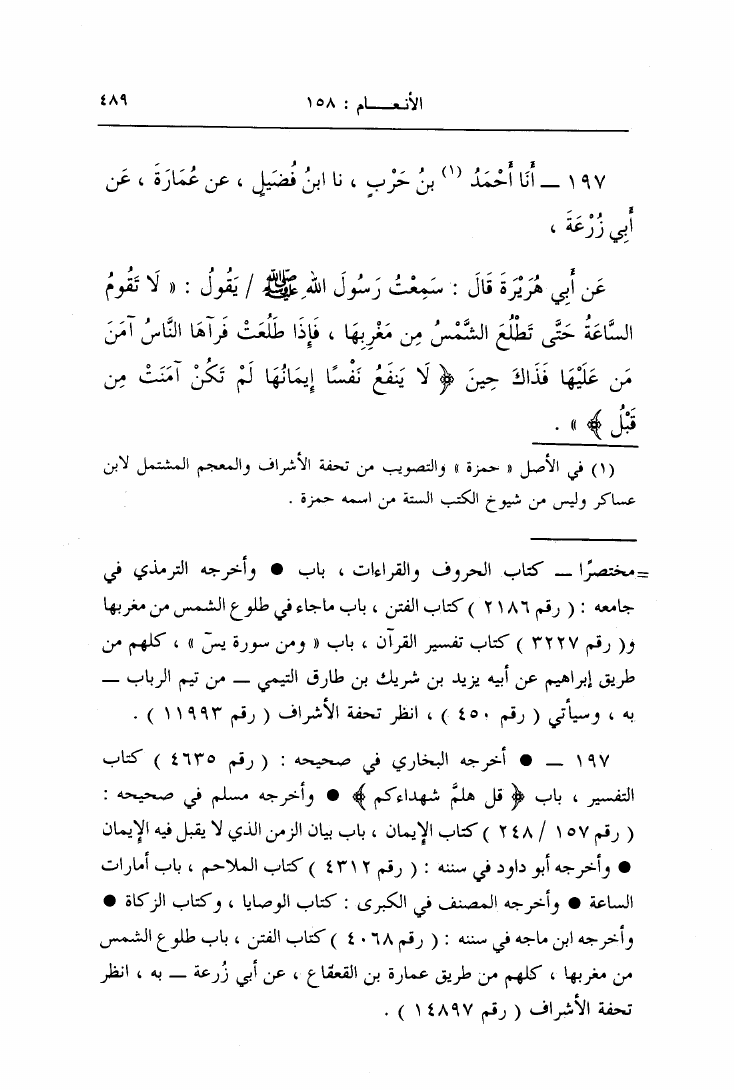 الأنعـــام : ١٥٨
٤٨٩
١٩٧ ــ أَنَا أَحْمَدُ (١) بنُ حَرْبٍ ، نا ابنُ فُضَيلٍ ، عن عُمَارَةَ ، عَن
أَبِي زُرْعَةَ ،
عَن أَبِي هُرَيْرَةَ قَالَ : سَمِعْتُ رَسُولَ اللهِ ﷺ / يَقُولُ : « لَا تَقُومُ
السَّاعَةُ حَتَّى تَطْلُعَ الشَّمْسُ مِن مَغْرِبِهَا ، فَإِذَا طَلَعَتْ فَرَآهَا النَّاسُ آمَنَ
مَن عَلَيْهَا فَذَاكَ حِينَ ﴿ لَا يَنفَعُ نَفْسًا إِيمَانُهَا لَمْ تَكُنْ آمَنَتْ مِن
قَبْلُ ﴾ » .
(١) في الأصل « حمزة » والتصويب من تحفة الأشراف والمعجم المشتمل لابن
عساكر وليس من شيوخ الكتب الستة من اسمه حمزة .
=مختصرًا ــ كتاب الحروف والقراءات ، باب ● وأخرجه الترمذي في
جامعه : ( رقم ٢١٨٦ ) كتاب الفتن ، باب ماجاء في طلوع الشمس من مغربها
و( رقم ٣٢٢٧ ) كتاب تفسير القرآن ، باب « ومن سورة يسٓ » ، كلهم من
طريق إبراهيم عن أبيه يزيد بن شريك بن طارق التيمي ــ من تيم الرباب ــ
به ، وسيأتي ( رقم ٤٥٠ ) ، انظر تحفة الأشراف ( رقم ١١٩٩٣ ) .
١٩٧ ــ ● أخرجه البخاري في صحيحه : ( رقم ٤٦٣٥ ) كتاب
التفسير ، باب ﴿ قل هلمَّ شهداءكم ﴾ ● وأخرجه مسلم في صحيحه :
( رقم ١٥٧ / ٢٤٨ ) كتاب الإيمان ، باب بيان الزمن الذي لا يقبل فيه الإيمان
● وأخرجه أبو داود في سننه : ( رقم ٤٣١٢ ) كتاب الملاحم ، باب أمارات
الساعة ● وأخرجه المصنف في الكبرى : كتاب الوصايا ، وكتاب الزكاة ●
وأخرجه ابن ماجه في سننه : ( رقم ٤٠٦٨ ) كتاب الفتن ، باب طلوع الشمس
من مغربها ، كلهم من طريق عمارة بن القعقاع ، عن أبي زُرعة ــ به ، انظر
تحفة الأشراف ( رقم ١٤٨٩٧ ) .